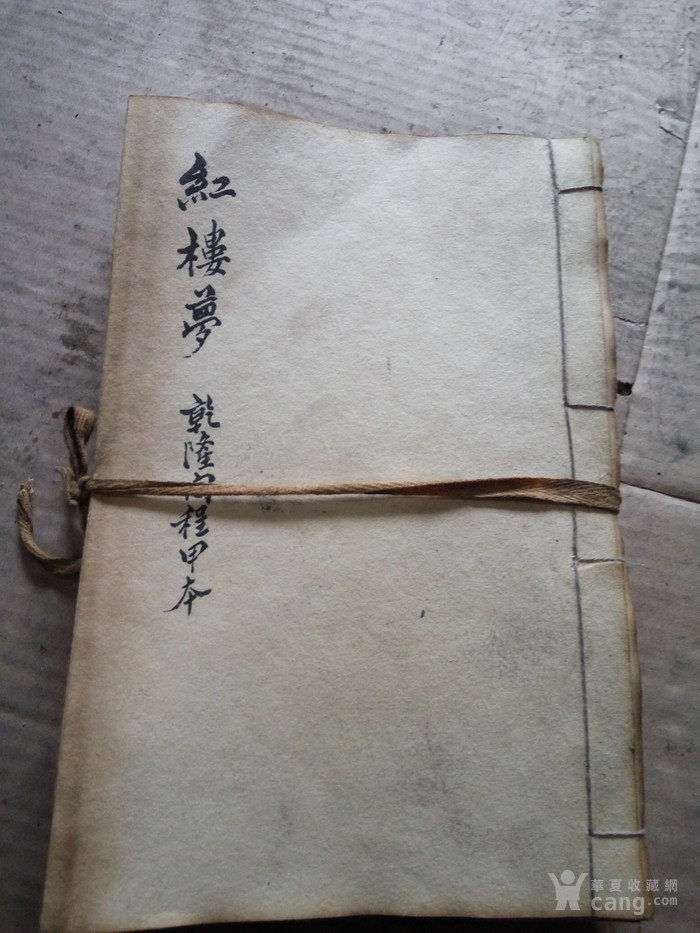 紅樓夢
乾隆間程甲本
華夏收藏網
cang.com